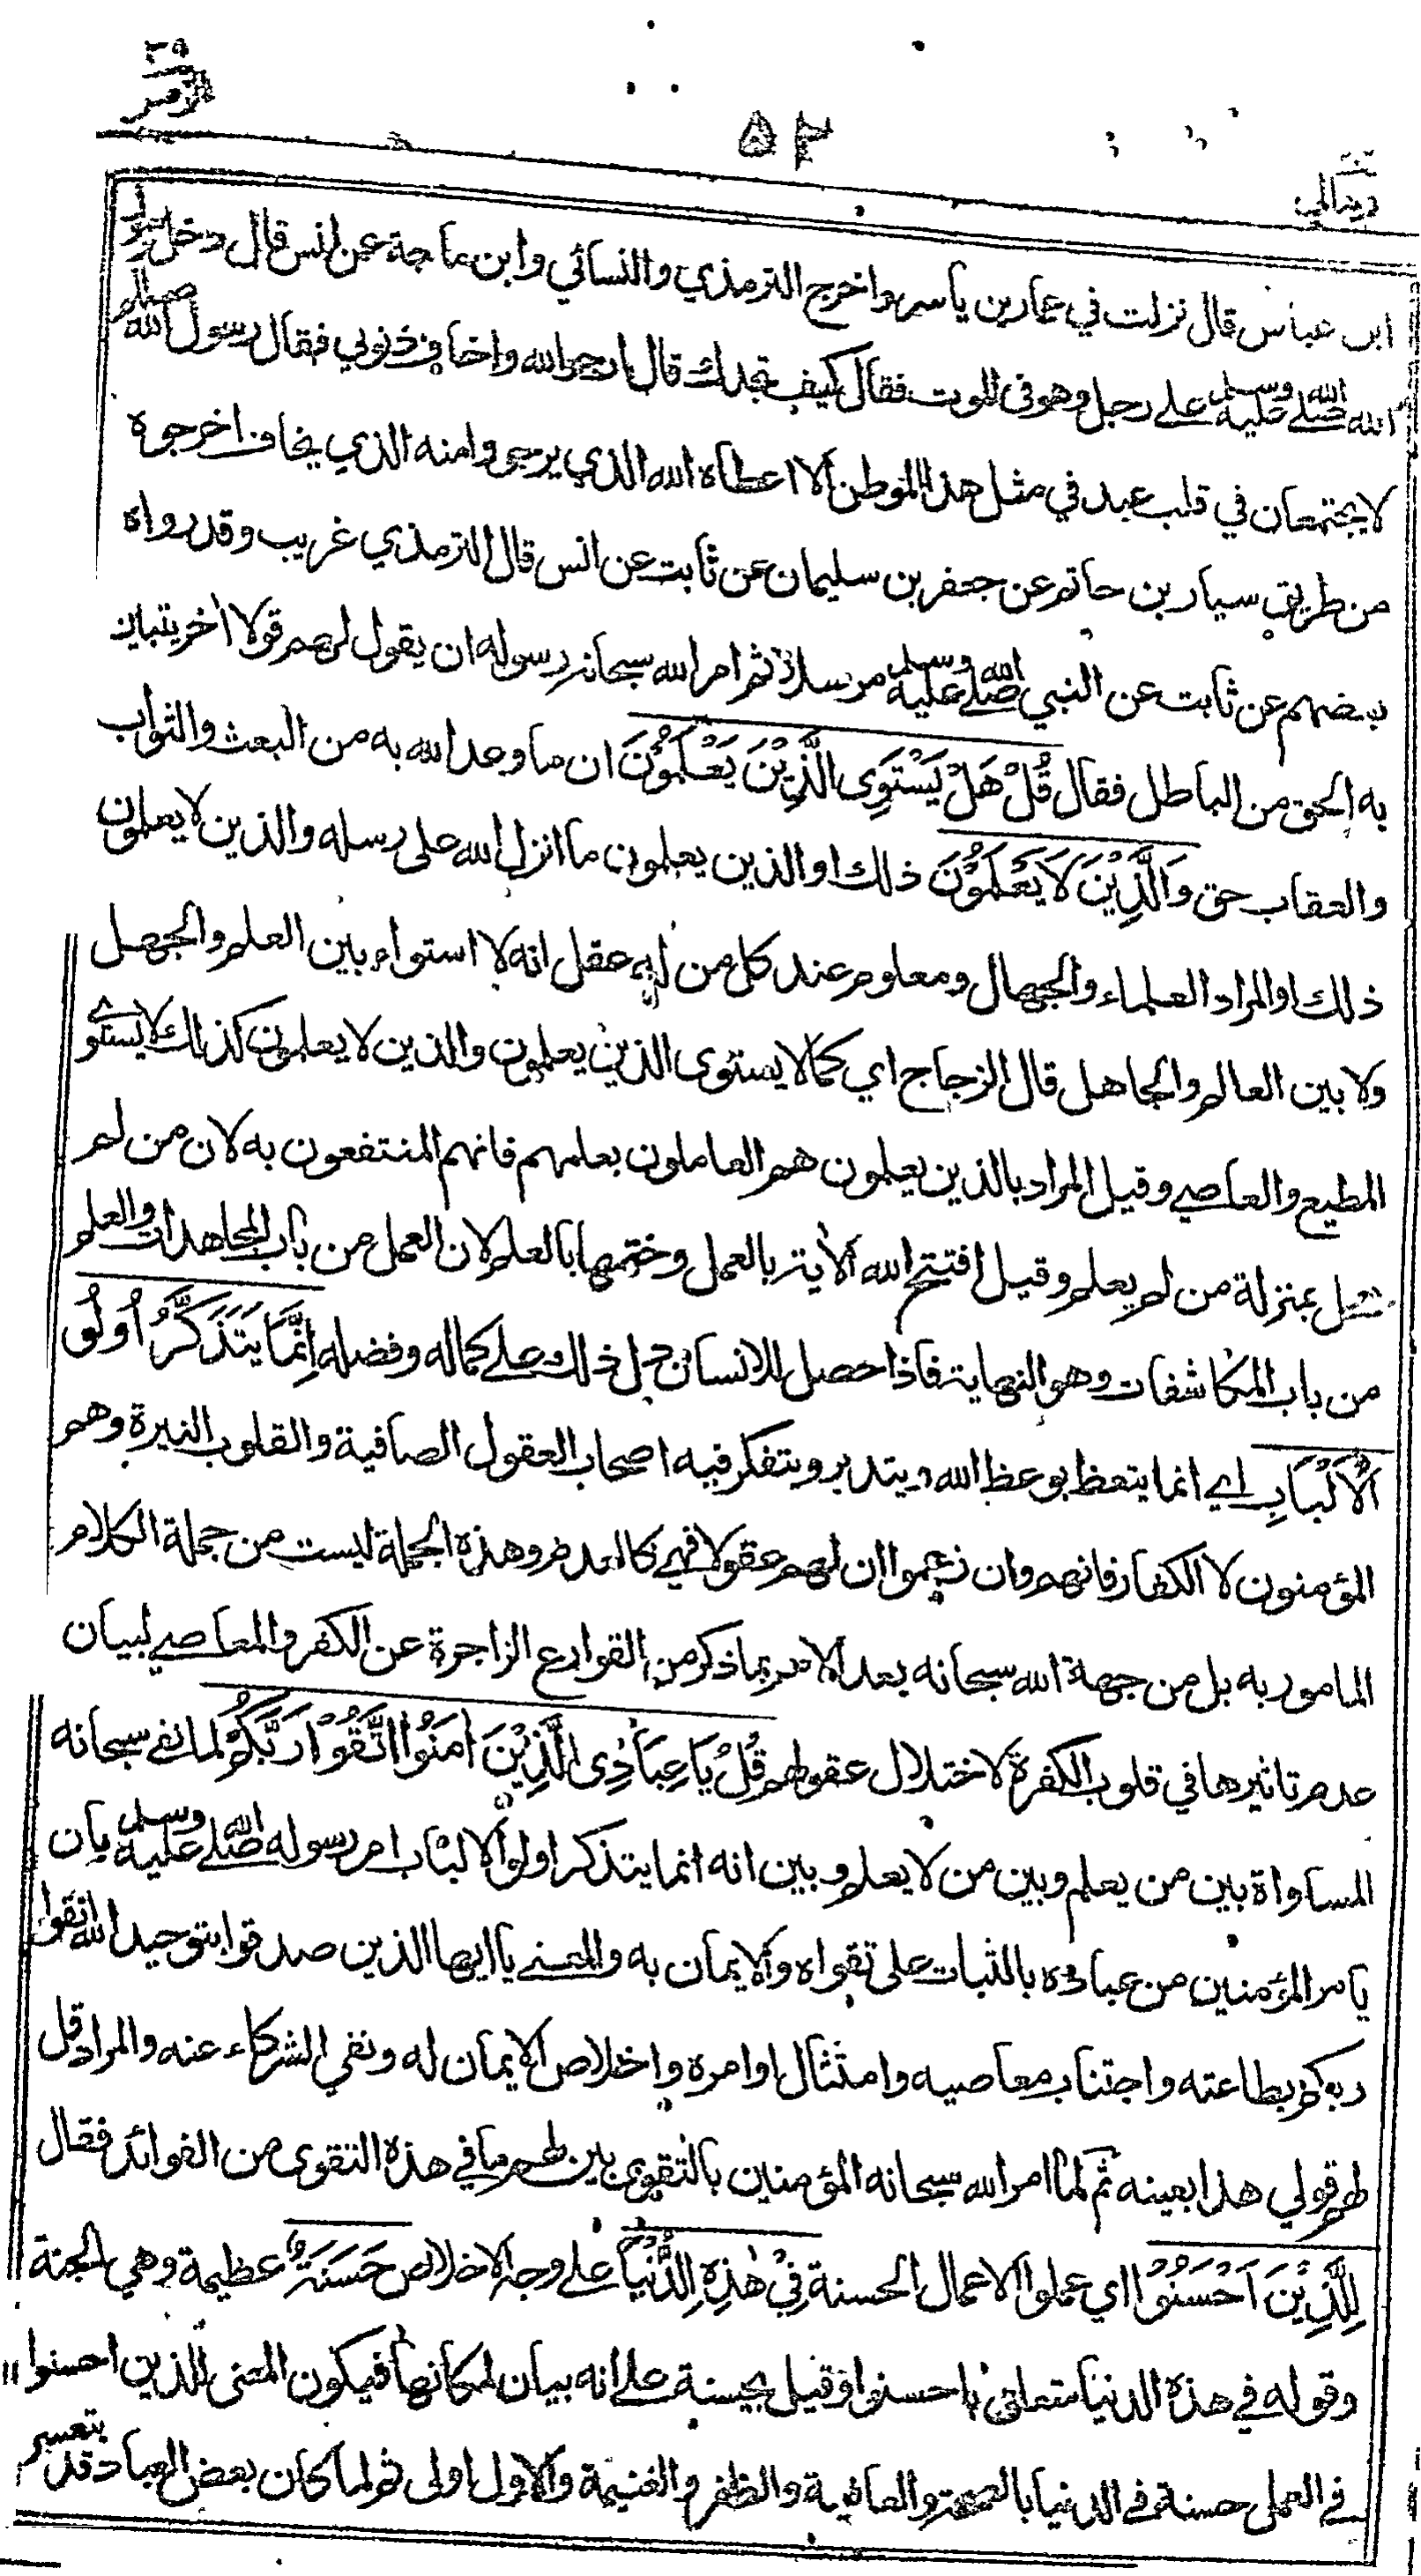 ٣٩
الزمر
٥٢
ومالي
ابن عباس قال نزلت في عمار بن ياسر واخرج الترمذي والنسائي وابن ماجة عن انس قال دخل رسول
الله صلى الله عليه وسلم على رجل وهو في الموت فقال كيف تجدك قال ارجو الله واخاف ذنوبي فقال رسول الله صللم
لا يجتمعان في قلب عبد في مثل هذا الموطن الا اعطاه الله الذي يرجو وامنه الذي يخاف اخرجوه
من طريق سيار بن حاتم عن جعفر بن سليمان عن ثابت عن انس قال الترمذي غريب وقد رواه
بعضهم عن ثابت عن النبي صلى الله عليه وسلم مرسلا ثم امر الله سبحانه رسوله ان يقول لهم قولا اخر يتبين
به الحق من الباطل فقال قُلْ هَلْ يَسْتَوِى الَّذِيْنَ يَعْلَمُوْنَ ان ما وعد الله به من البعث والثواب
والعقاب حق وَالَّذِيْنَ لَا يَعْلَمُوْنَ ذلك او الذين يعلمون ما انزل الله على رسله والذين لا يعلمون
ذلك او المراد العلماء والجهال ومعلوم عند كل من له عقل انه لا استواء بين العلم والجهل
ولا بين العالم والجاهل قال الزجاج اي كما لا يستوى الذين يعلمون والذين لا يعلمون كذلك لا يستوي
المطيع والعاصي وقيل المراد بالذين يعلمون هم العاملون بعلمهم فانهم المنتفعون به لان من لم
يعمل بمنزلة من لم يعلم وقيل افتتح الله الاية بالعمل وختمها بالعلم لان العمل من باب المجاهدات والعلم
من باب المكاشفات وهو النهاية فاذا حصل للانسان دل ذلك على كماله وفضله اِنَّمَا يَتَذَكَّرُ اُولُو
الْاَلْبَابِ اي انما يتعظ بوعظ الله ويتدبر ويتفكر فيه اصحاب العقول الصافية والقلوب النيرة وهم
المؤمنون لا الكفار فانهم وان زعموا ان لهم عقولا فهي كالعدم وهذه الجملة ليست من جملة الكلام
المامور به بل من جهة الله سبحانه بعد الامر بما ذكر من القوارع الزاجرة عن الكفر والمعاصي لبيان
عدم تاثيرها في قلوب الكفرة لاختلال عقولهم قُلْ يَا عِبَادِى الَّذِيْنَ اٰمَنُوا اتَّقُوْا رَبَّكُمْ لما نفى سبحانه
المساواة بين من يعلم وبين من لا يعلم وبين انه انما يتذكر اولوا الالباب امر رسوله صلى الله عليه وسلم بان
يامر المؤمنين من عباده بالثبات على تقواه والايمان به والمعنى يا ايها الذين صدقوا بتوحيد الله اتقوا
ربكم بطاعته واجتناب معاصيه وامتثال اوامره واخلاص الايمان له ونفي الشركاء عنه والمراد قل
لهم قولي هذا بعينه ثم لما امر الله سبحانه المؤمنين بالتقوى بين لهم ما في هذه التقوى من الفوائد فقال
لِلَّذِيْنَ اَحْسَنُوْا اي عملوا الاعمال الحسنة فِيْ هٰذِهِ الدُّنْيَا على وجه الاخلاص حَسَنَةٌ عظيمة وهي الجنة
وقوله في هذه الدنيا متعلق باحسنوا وقيل بحسنة على انه بيان لمكانها فيكون المعنى للذين احسنوا
في العمل حسنة في الدنيا بالصحة والعافية والظفر والغنيمة والاول اولى ثم لما كان بعض العباد قد يتعسر